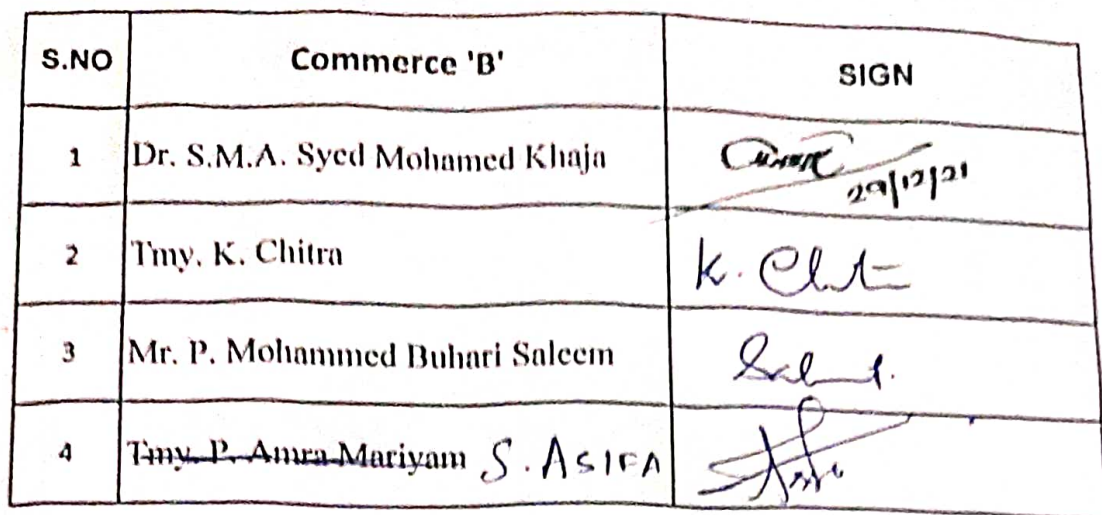 S.NO Commerce 'B' SIGN
1 Dr. S.M.A. Syed Mohamed Khaja 29/12/21
2 Tmy. K. Chitra K. Chit
3 Mr. P. Mohammed Buhari Saleem
4 Tmy. P. Amra Mariyam S. ASIFA